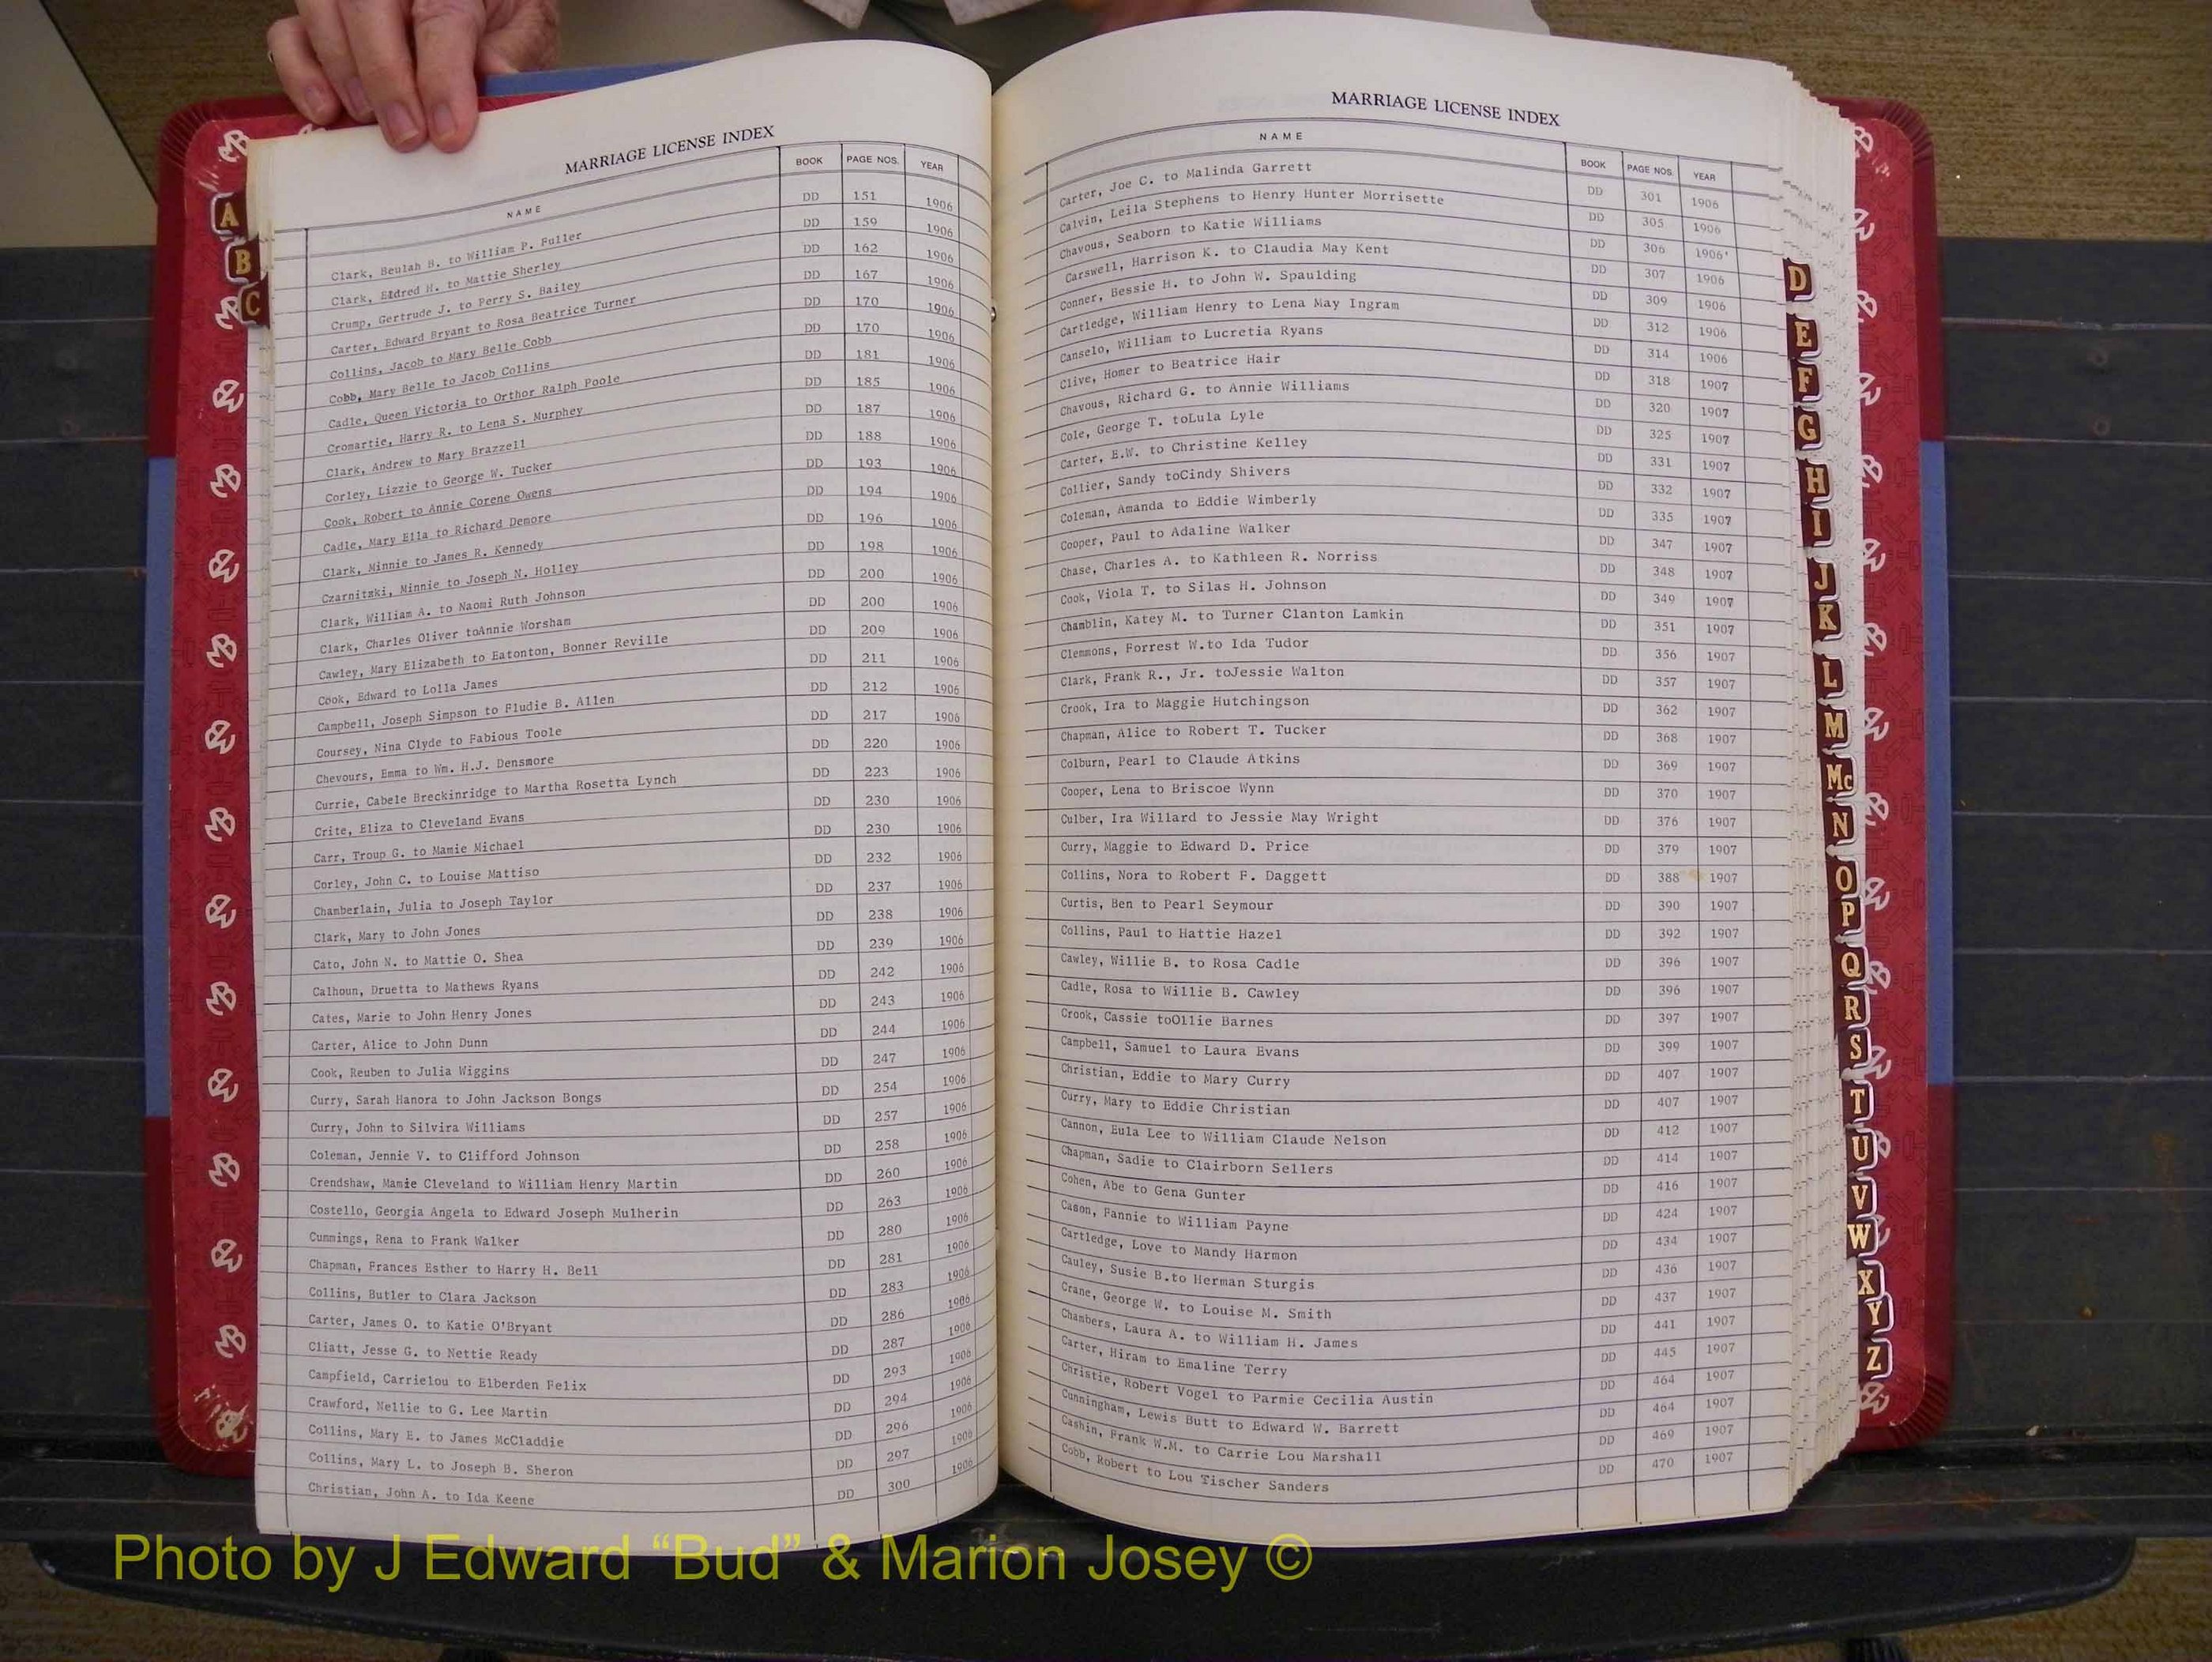 MARRIAGE LICENSE INDEX
NAME BOOK PAGE NOS. YEAR
Clark, Beulah B. to William P. Fuller DD 151 1906
Clark, Eldred H. to Mattie Sherley DD 159 1906
Crump, Gertrude J. to Perry S. Bailey DD 162 1906
Carter, Edward Bryant to Rosa Beatrice Turner DD 167 1906
Collins, Jacob to Mary Belle Cobb DD 170 1906
Cobb, Mary Belle to Jacob Collins DD 170 1906
Cadle, Queen Victoria to Orthor Ralph Poole DD 181 1906
Cromartie, Harry R. to Lena S. Murphey DD 185 1906
Clark, Andrew to Mary Brazzell DD 187 1906
Corley, Lizzie to George W. Tucker DD 188 1906
Cook, Robert to Annie Corene Owens DD 193 1906
Cadle, Mary Ella to Richard Demore DD 194 1906
Clark, Minnie to James R. Kennedy DD 196 1906
Czarnitzki, Minnie to Joseph N. Holley DD 198 1906
Clark, William A. to Naomi Ruth Johnson DD 200 1906
Clark, Charles Oliver toAnnie Worsham DD 200 1906
Cawley, Mary Elizabeth to Eatonton, Bonner Reville DD 209 1906
Cook, Edward to Lolla James DD 211 1906
Campbell, Joseph Simpson to Fludie B. Allen DD 212 1906
Coursey, Nina Clyde to Fabious Toole DD 217 1906
Chevours, Emma to Wm. H.J. Densmore DD 220 1906
Currie, Cabele Breckinridge to Martha Rosetta Lynch DD 223 1906
Crite, Eliza to Cleveland Evans DD 230 1906
Carr, Troup G. to Mamie Michael DD 230 1906
Corley, John C. to Louise Mattiso DD 232 1906
Chamberlain, Julia to Joseph Taylor DD 237 1906
Clark, Mary to John Jones DD 238 1906
Cato, John N. to Mattie O. Shea DD 239 1906
Calhoun, Druetta to Mathews Ryans DD 242 1906
Cates, Marie to John Henry Jones DD 243 1906
Carter, Alice to John Dunn DD 244 1906
Cook, Reuben to Julia Wiggins DD 247 1906
Curry, Sarah Hanora to John Jackson Bongs DD 254 1906
Curry, John to Silvira Williams DD 257 1906
Coleman, Jennie V. to Clifford Johnson DD 258 1906
Crendshaw, Mamie Cleveland to William Henry Martin DD 260 1906
Costello, Georgia Angela to Edward Joseph Mulherin DD 263 1906
Cummings, Rena to Frank Walker DD 280 1906
Chapman, Frances Esther to Harry H. Bell DD 281 1906
Collins, Butler to Clara Jackson DD 283 1906
Carter, James O. to Katie O'Bryant DD 286 1906
Cliatt, Jesse G. to Nettie Ready DD 287 1906
Campfield, Carrielou to Elberden Felix DD 293 1906
Crawford, Nellie to G. Lee Martin DD 294 1906
Collins, Mary E. to James McCladdie DD 296 1906
Collins, Mary L. to Joseph B. Sheron DD 297 1906
Christian, John A. to Ida Keene DD 300 1906
A
B
C
MARRIAGE LICENSE INDEX
NAME BOOK PAGE NOS. YEAR
Carter, Joe C. to Malinda Garrett DD 301 1906
Calvin, Leila Stephens to Henry Hunter Morrisette DD 305 1906
Chavous, Seaborn to Katie Williams DD 306 1906'
Carswell, Harrison K. to Claudia May Kent DD 307 1906
Conner, Bessie H. to John W. Spaulding DD 309 1906
Cartledge, William Henry to Lena May Ingram DD 312 1906
Canselo, William to Lucretia Ryans DD 314 1906
Clive, Homer to Beatrice Hair DD 318 1907
Chavous, Richard G. to Annie Williams DD 320 1907
Cole, George T. toLula Lyle DD 325 1907
Carter, E.W. to Christine Kelley DD 331 1907
Collier, Sandy toCindy Shivers DD 332 1907
Coleman, Amanda to Eddie Wimberly DD 335 1907
Cooper, Paul to Adaline Walker DD 347 1907
Chase, Charles A. to Kathleen R. Norriss DD 348 1907
Cook, Viola T. to Silas H. Johnson DD 349 1907
Chamblin, Katey M. to Turner Clanton Lamkin DD 351 1907
Clemmons, Forrest W.to Ida Tudor DD 356 1907
Clark, Frank R., Jr. toJessie Walton DD 357 1907
Crook, Ira to Maggie Hutchingson DD 362 1907
Chapman, Alice to Robert T. Tucker DD 368 1907
Colburn, Pearl to Claude Atkins DD 369 1907
Cooper, Lena to Briscoe Wynn DD 370 1907
Culber, Ira Willard to Jessie May Wright DD 376 1907
Curry, Maggie to Edward D. Price DD 379 1907
Collins, Nora to Robert F. Daggett DD 388 1907
Curtis, Ben to Pearl Seymour DD 390 1907
Collins, Paul to Hattie Hazel DD 392 1907
Cawley, Willie B. to Rosa Cadle DD 396 1907
Cadle, Rosa to Willie B. Cawley DD 396 1907
Crook, Cassie toOllie Barnes DD 397 1907
Campbell, Samuel to Laura Evans DD 399 1907
Christian, Eddie to Mary Curry DD 407 1907
Curry, Mary to Eddie Christian DD 407 1907
Cannon, Eula Lee to William Claude Nelson DD 412 1907
Chapman, Sadie to Clairborn Sellers DD 414 1907
Cohen, Abe to Gena Gunter DD 416 1907
Cason, Fannie to William Payne DD 424 1907
Cartledge, Love to Mandy Harmon DD 434 1907
Cauley, Susie B.to Herman Sturgis DD 436 1907
Crane, George W. to Louise M. Smith DD 437 1907
Chambers, Laura A. to William H. James DD 441 1907
Carter, Hiram to Emaline Terry DD 445 1907
Christie, Robert Vogel to Parmie Cecilia Austin DD 464 1907
Cunningham, Lewis Butt to Edward W. Barrett DD 464 1907
Cashin, Frank W.M. to Carrie Lou Marshall DD 469 1907
Cobb, Robert to Lou Tischer Sanders DD 470 1907
D
E
F
G
H
I
J
K
L
M
Mc
N
O
P
Q
R
S
T
U
V
W
X
Y
Z
Photo by J Edward “Bud” & Marion Josey ©